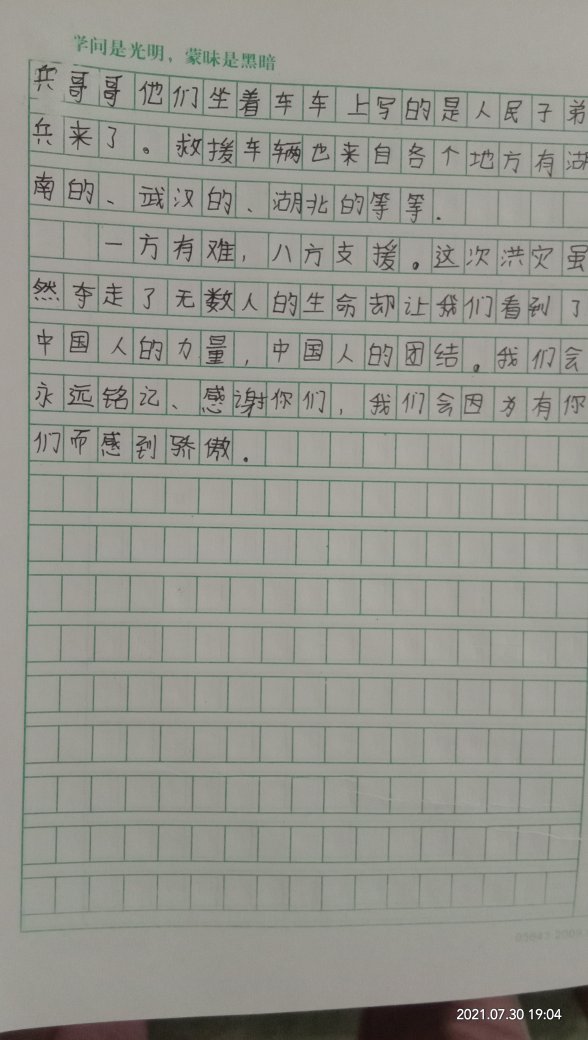 学问是光明，蒙昧是黑暗
兵哥哥他们坐着车车上写的是人民子弟
兵来了。救援车辆也来自各个地方有湖
南的、武汉的、湖北的等等.
一方有难，八方支援。这次洪灾虽
然夺走了无数人的生命却让我们看到了
中国人的力量，中国人的团结。我们会
永远铭记、感谢你们，我们会因为有你
们而感到骄傲.
2021.07.30 19:04